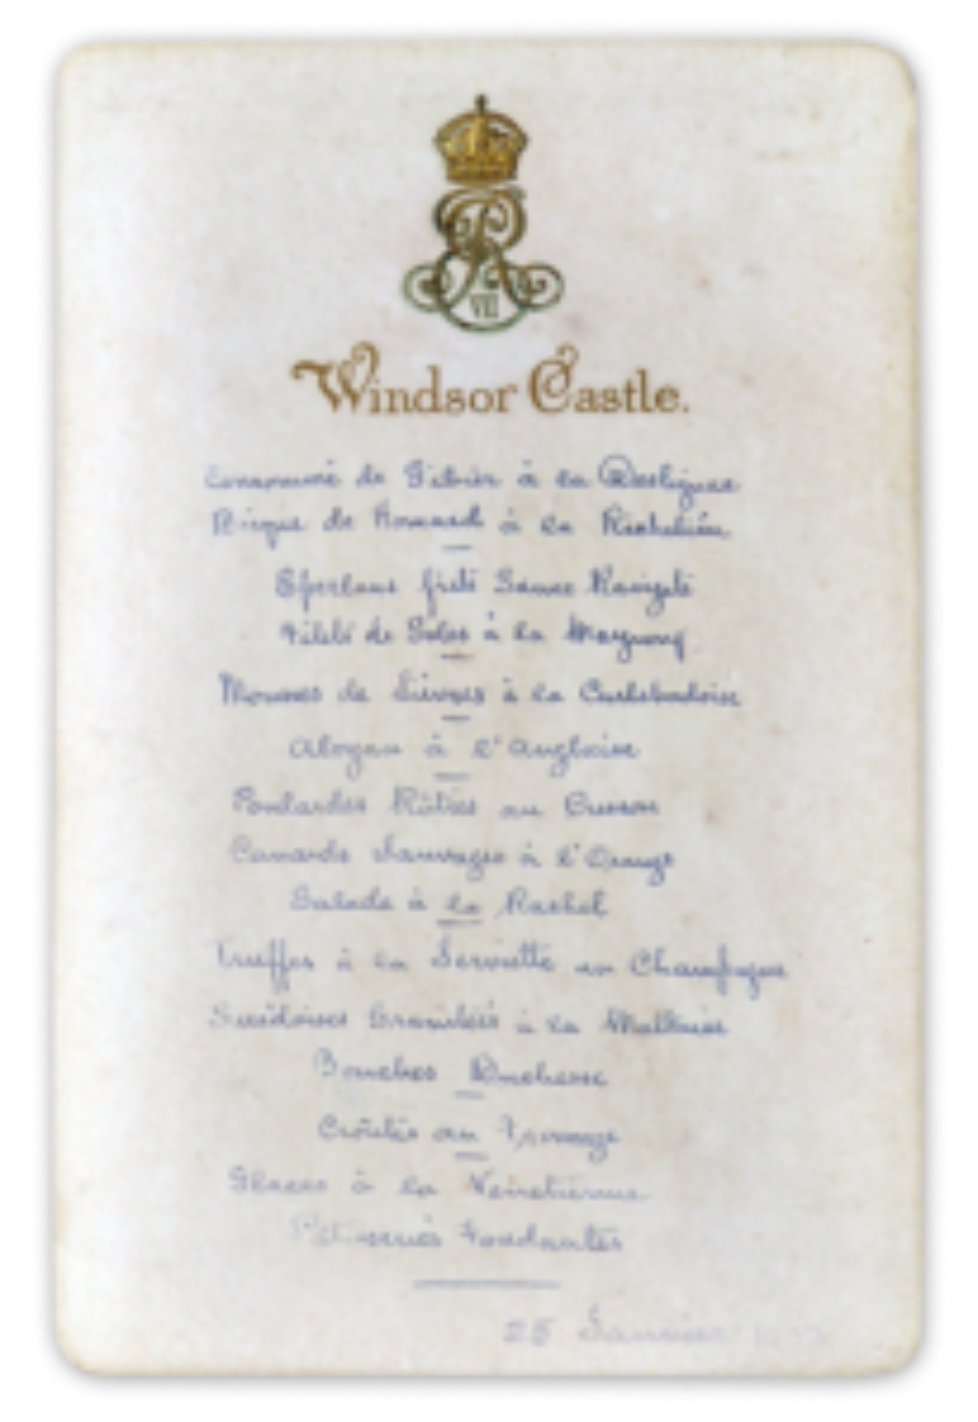 VII
Windsor Castle.
Consommé de Gibier à la
Bisque de Homard à la Richelieu
Eperlans frits Sauce Ravigote
Filets de Soles à la
Mousses de Lièvres à la
Aloyau à l'Anglaise
Poulardes Rôties au Cresson
Canards Sauvages à l'Orange
Salade à la Rachel
Truffes à la Serviette au Champagne
Suédoises à la
Bouches Duchesse
Croûtes au Fromage
Glaces à la Venetienne
Pâtisseries Fondantes
25 Janvier